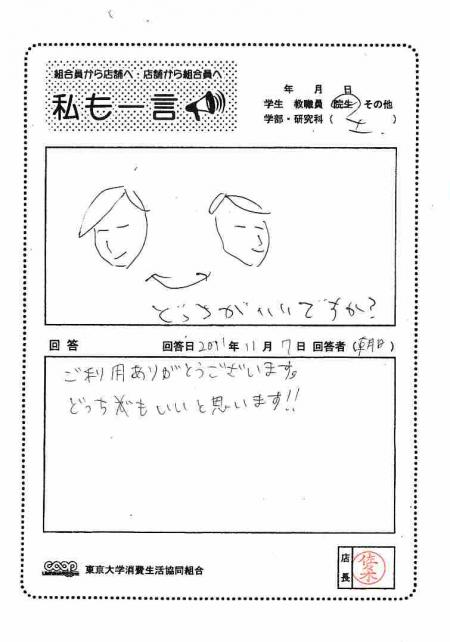 組合員から店舗へ・店舗から組合員へ
私も一言
年 月 日
学生 教職員 院生 その他
学部・研究科( 工 )
どっちがいいですか?
回答 回答日2011年11月7日 回答者( )
ご利用ありがとうございます。
どっちもいいと思います!!
coop 東京大学消費生活協同組合
店長